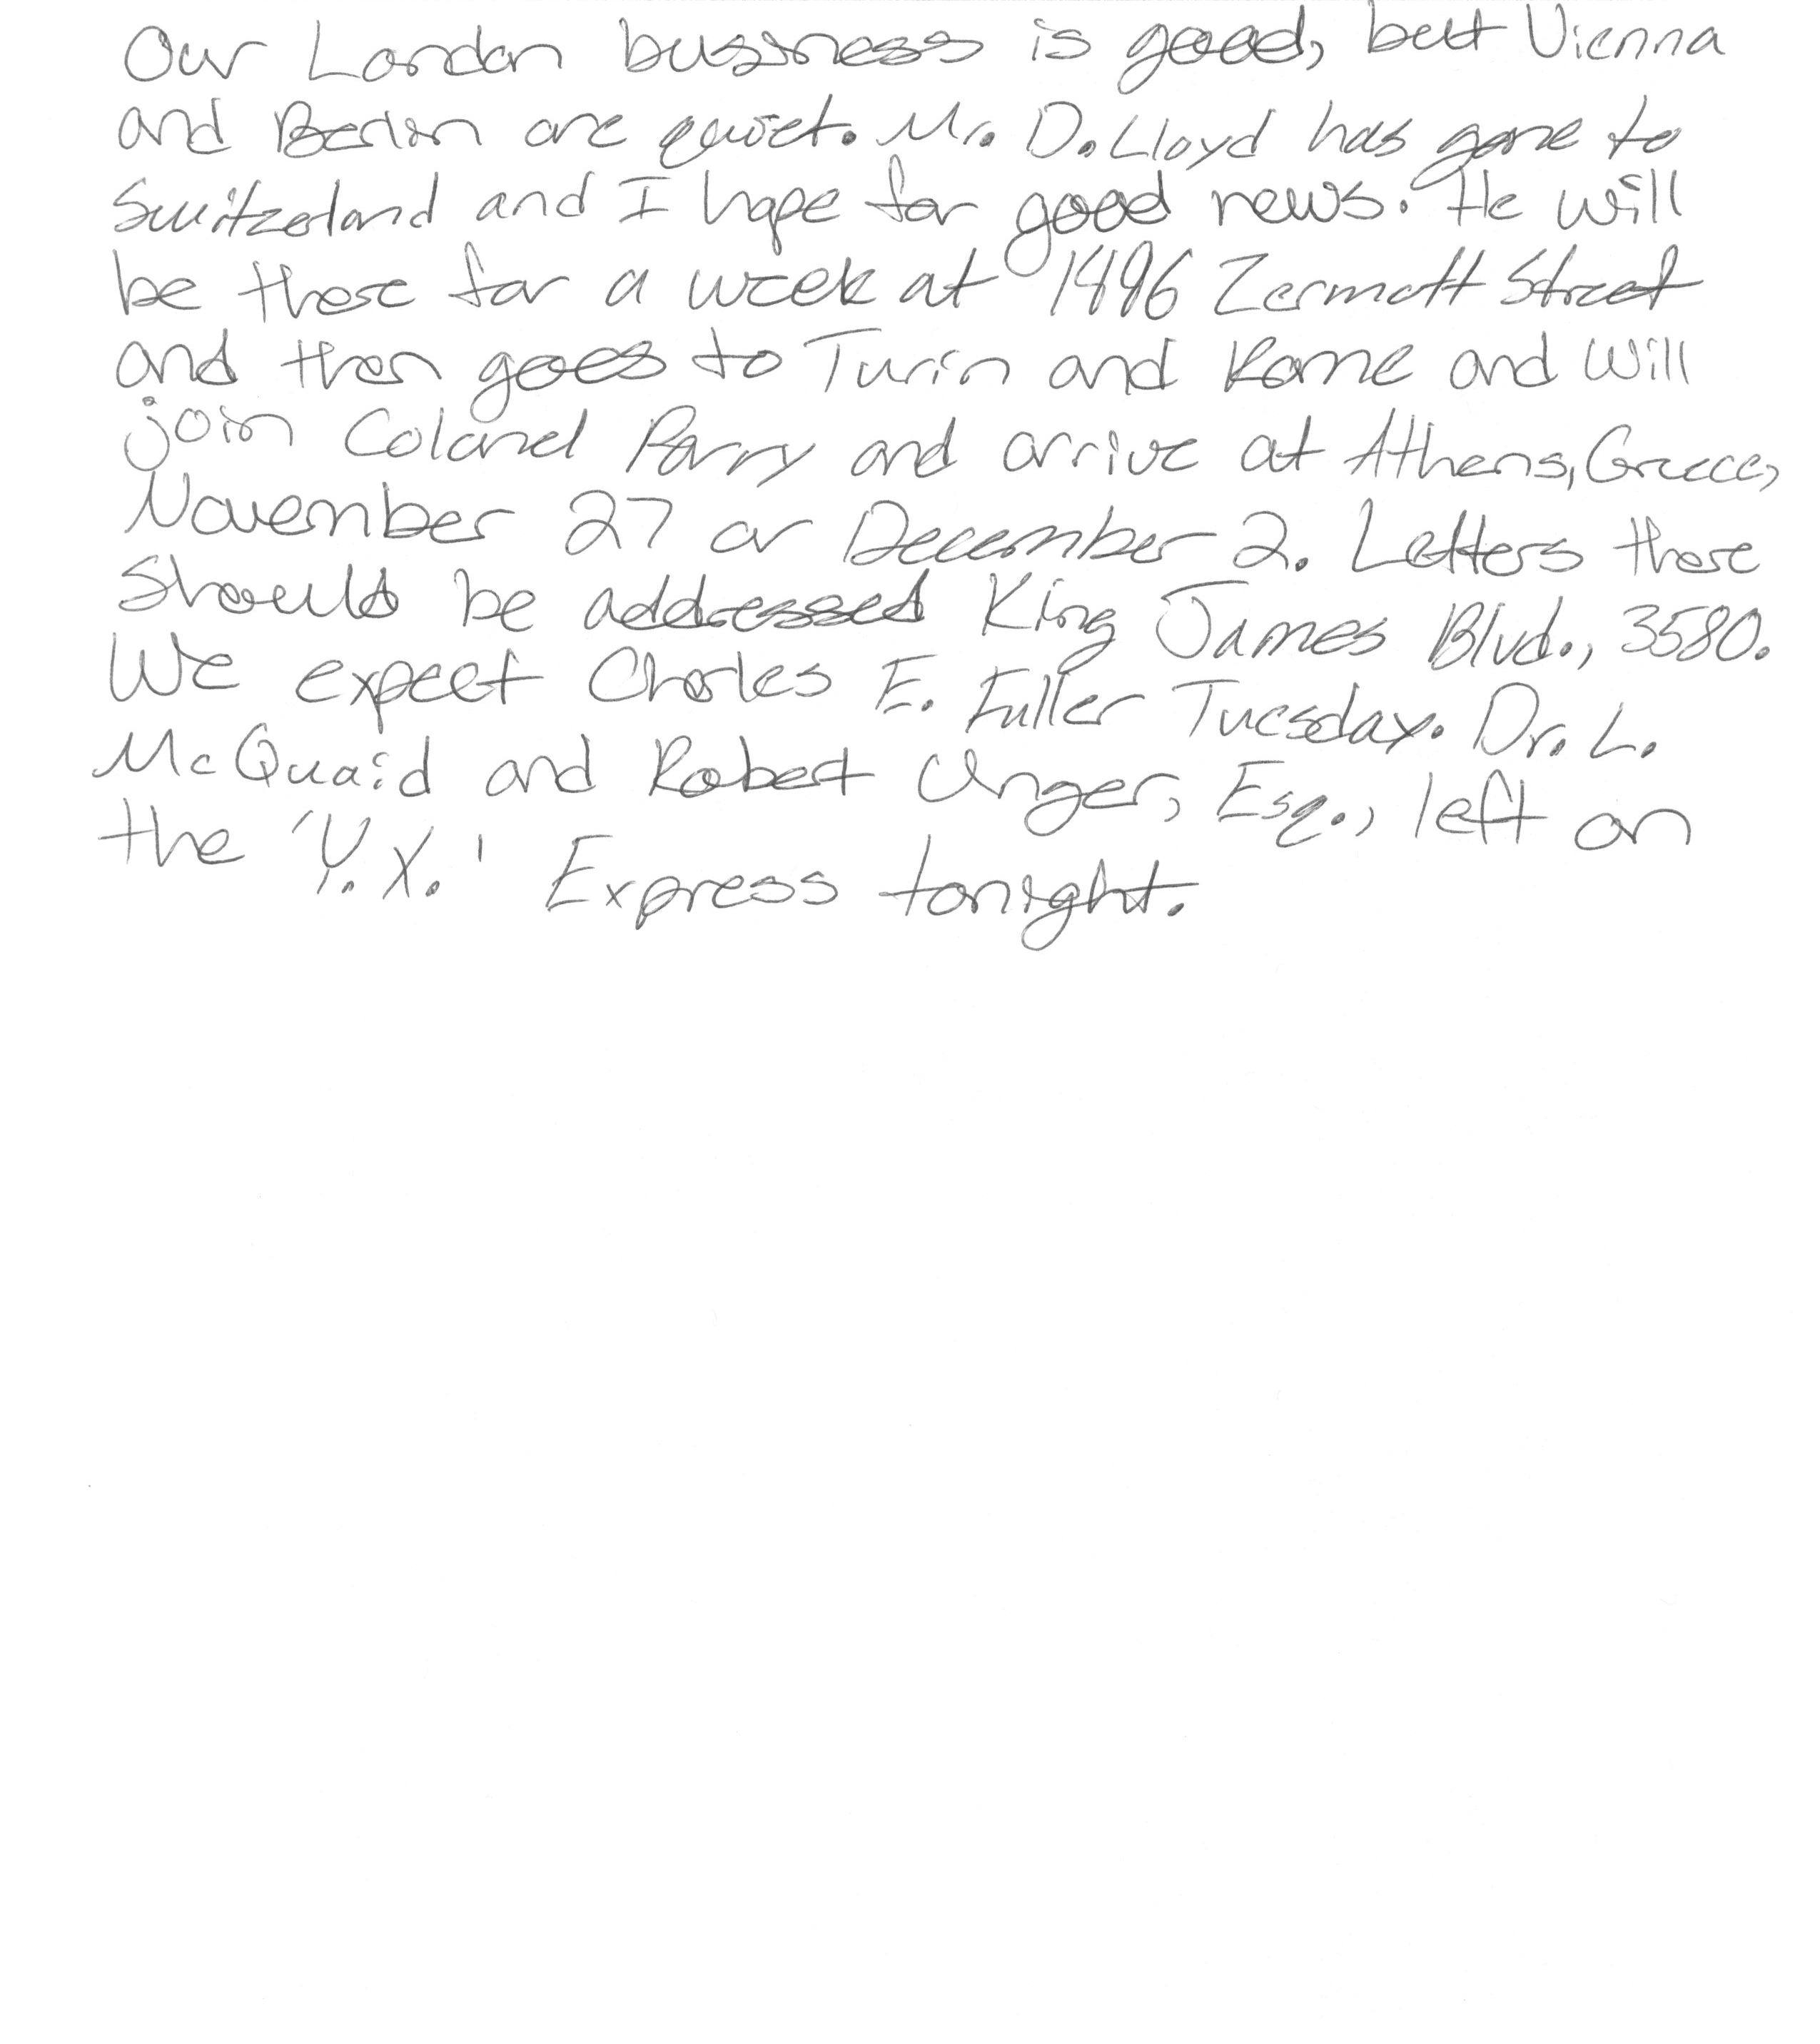 Our London business is good, but Vienna
and Berlin are quiet. Mr. D. Lloyd has gone to
Switzerland and I hope for good news. He will
be there for a week at 1496 Zermott Street
and then goes to Turin and Rome and will
join Colonel Parry and arrive at Athens, Greece,
November 27 or December 2. Letters there
should be addressed King James Blvd., 3580.
We expect Charles E. Fuller Tuesday. Dr. L.
McQuaid and Robert Unger, Esq., left on
the 'Y.X.' Express tonight.